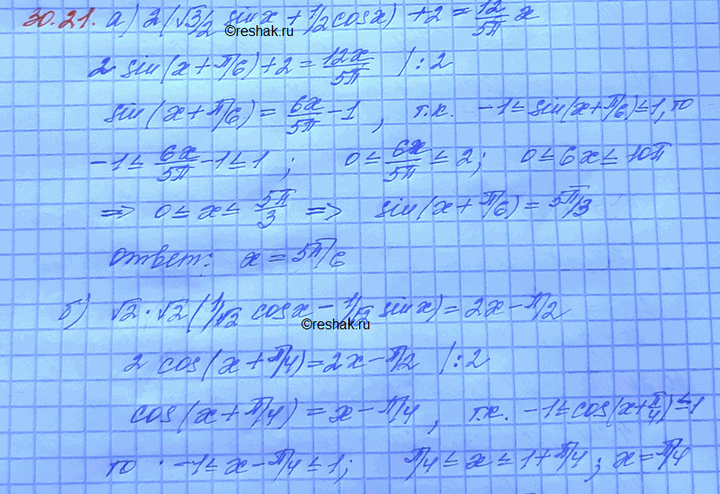 30.21. а) 2(√3/2 sinx + 1/2 cosx) + 2 = 12/5π x
©reshak.ru
2 sin(x + π/6) + 2 = 12x/5π | :2
sin(x + π/6) = 6x/5π - 1, т.к. -1 ≤ sin(x + π/6) ≤ 1, то
-1 ≤ 6x/5π - 1 ≤ 1; 0 ≤ 6x/5π ≤ 2; 0 ≤ 6x ≤ 10π
=> 0 ≤ x ≤ 5π/3 => sin(x + π/6) = 5π/3
ответ: x = 5π/6
б) √2·√2(1/√2 cosx - 1/√2 sinx) = 2x - π/2
©reshak.ru
2 cos(x + π/4) = 2x - π/2 | :2
cos(x + π/4) = x - π/4, т.к. -1 ≤ cos(x + π/4) ≤ 1
то -1 ≤ x - π/4 ≤ 1; π/4 ≤ x ≤ 1 + π/4; x = π/4